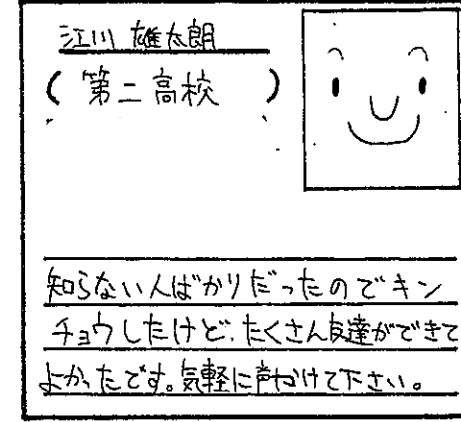 江川 雄太朗
(第二高校)
知らない人ばかりだったのでキン
チョウしたけど、たくさん友達ができて
よかったです。気軽に声かけて下さい。